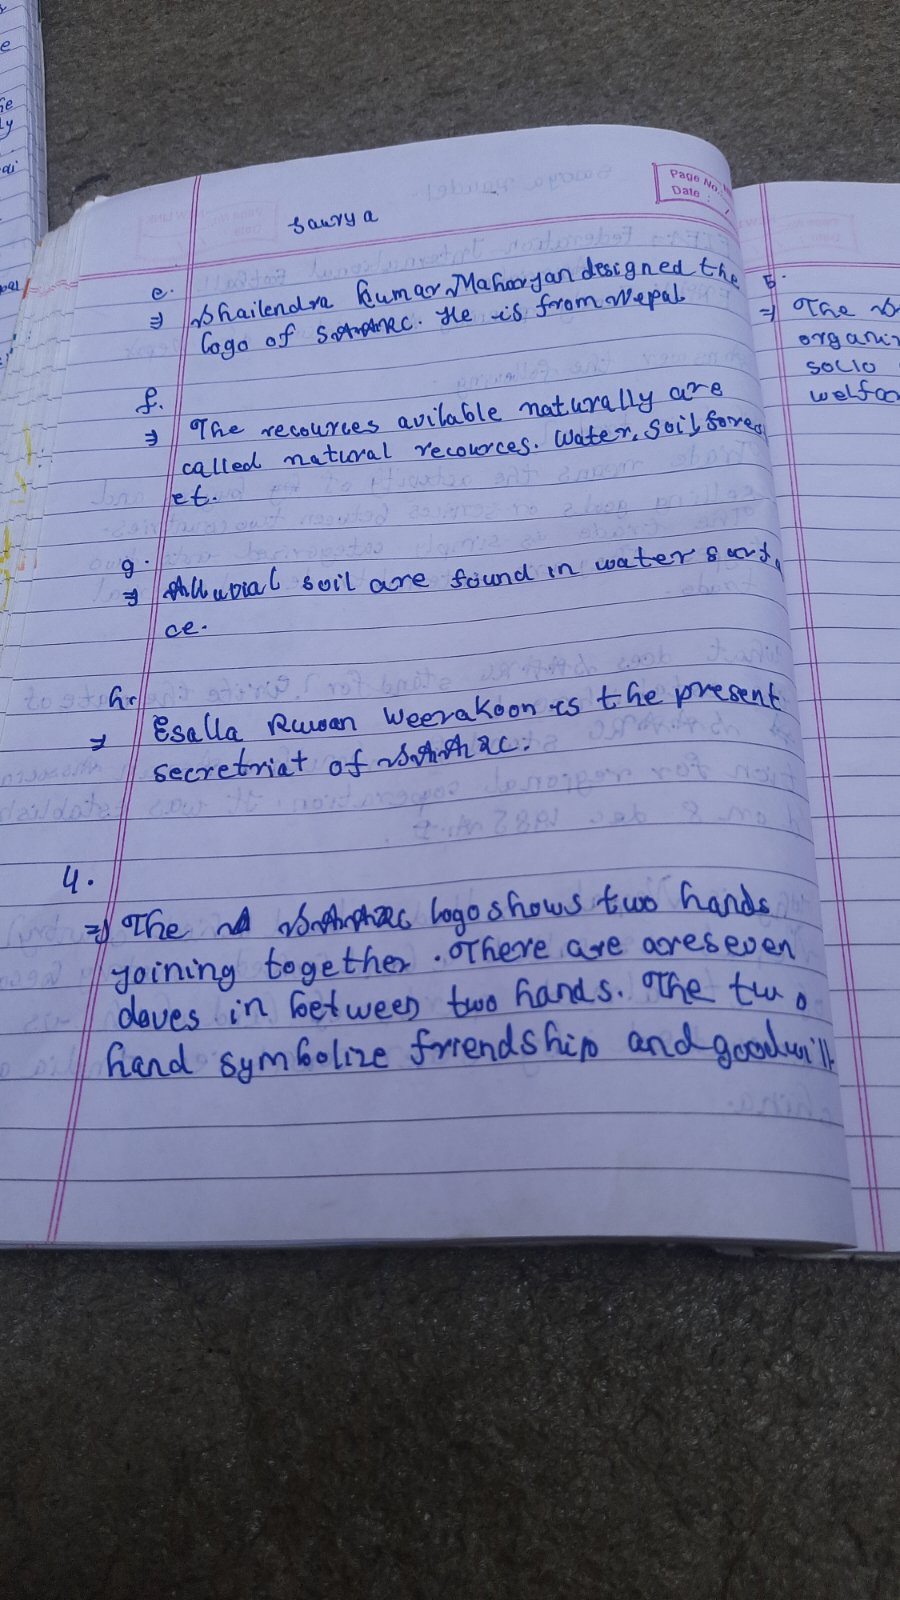 Page No.:
Date :
Saurya
e.
⇒ Shailendra Kumar Maharjan designed the
logo of SAARC. He is from Nepal.
f.
⇒ The recources avilable naturally are
called natural recources. Water, Soil, fores
et.
g.
⇒ Alluvial soil are found in water surf
ce.
h.
⇒ Esalla Ruwan Weerakoon is the present
secretriat of SAARC.
4.
⇒ The SAARC logo shows two hands
joining together. There are are seven
doves in between two hands. The two
hand symbolize friendship and goodwill
5.
⇒ The
organi
socio
welfa